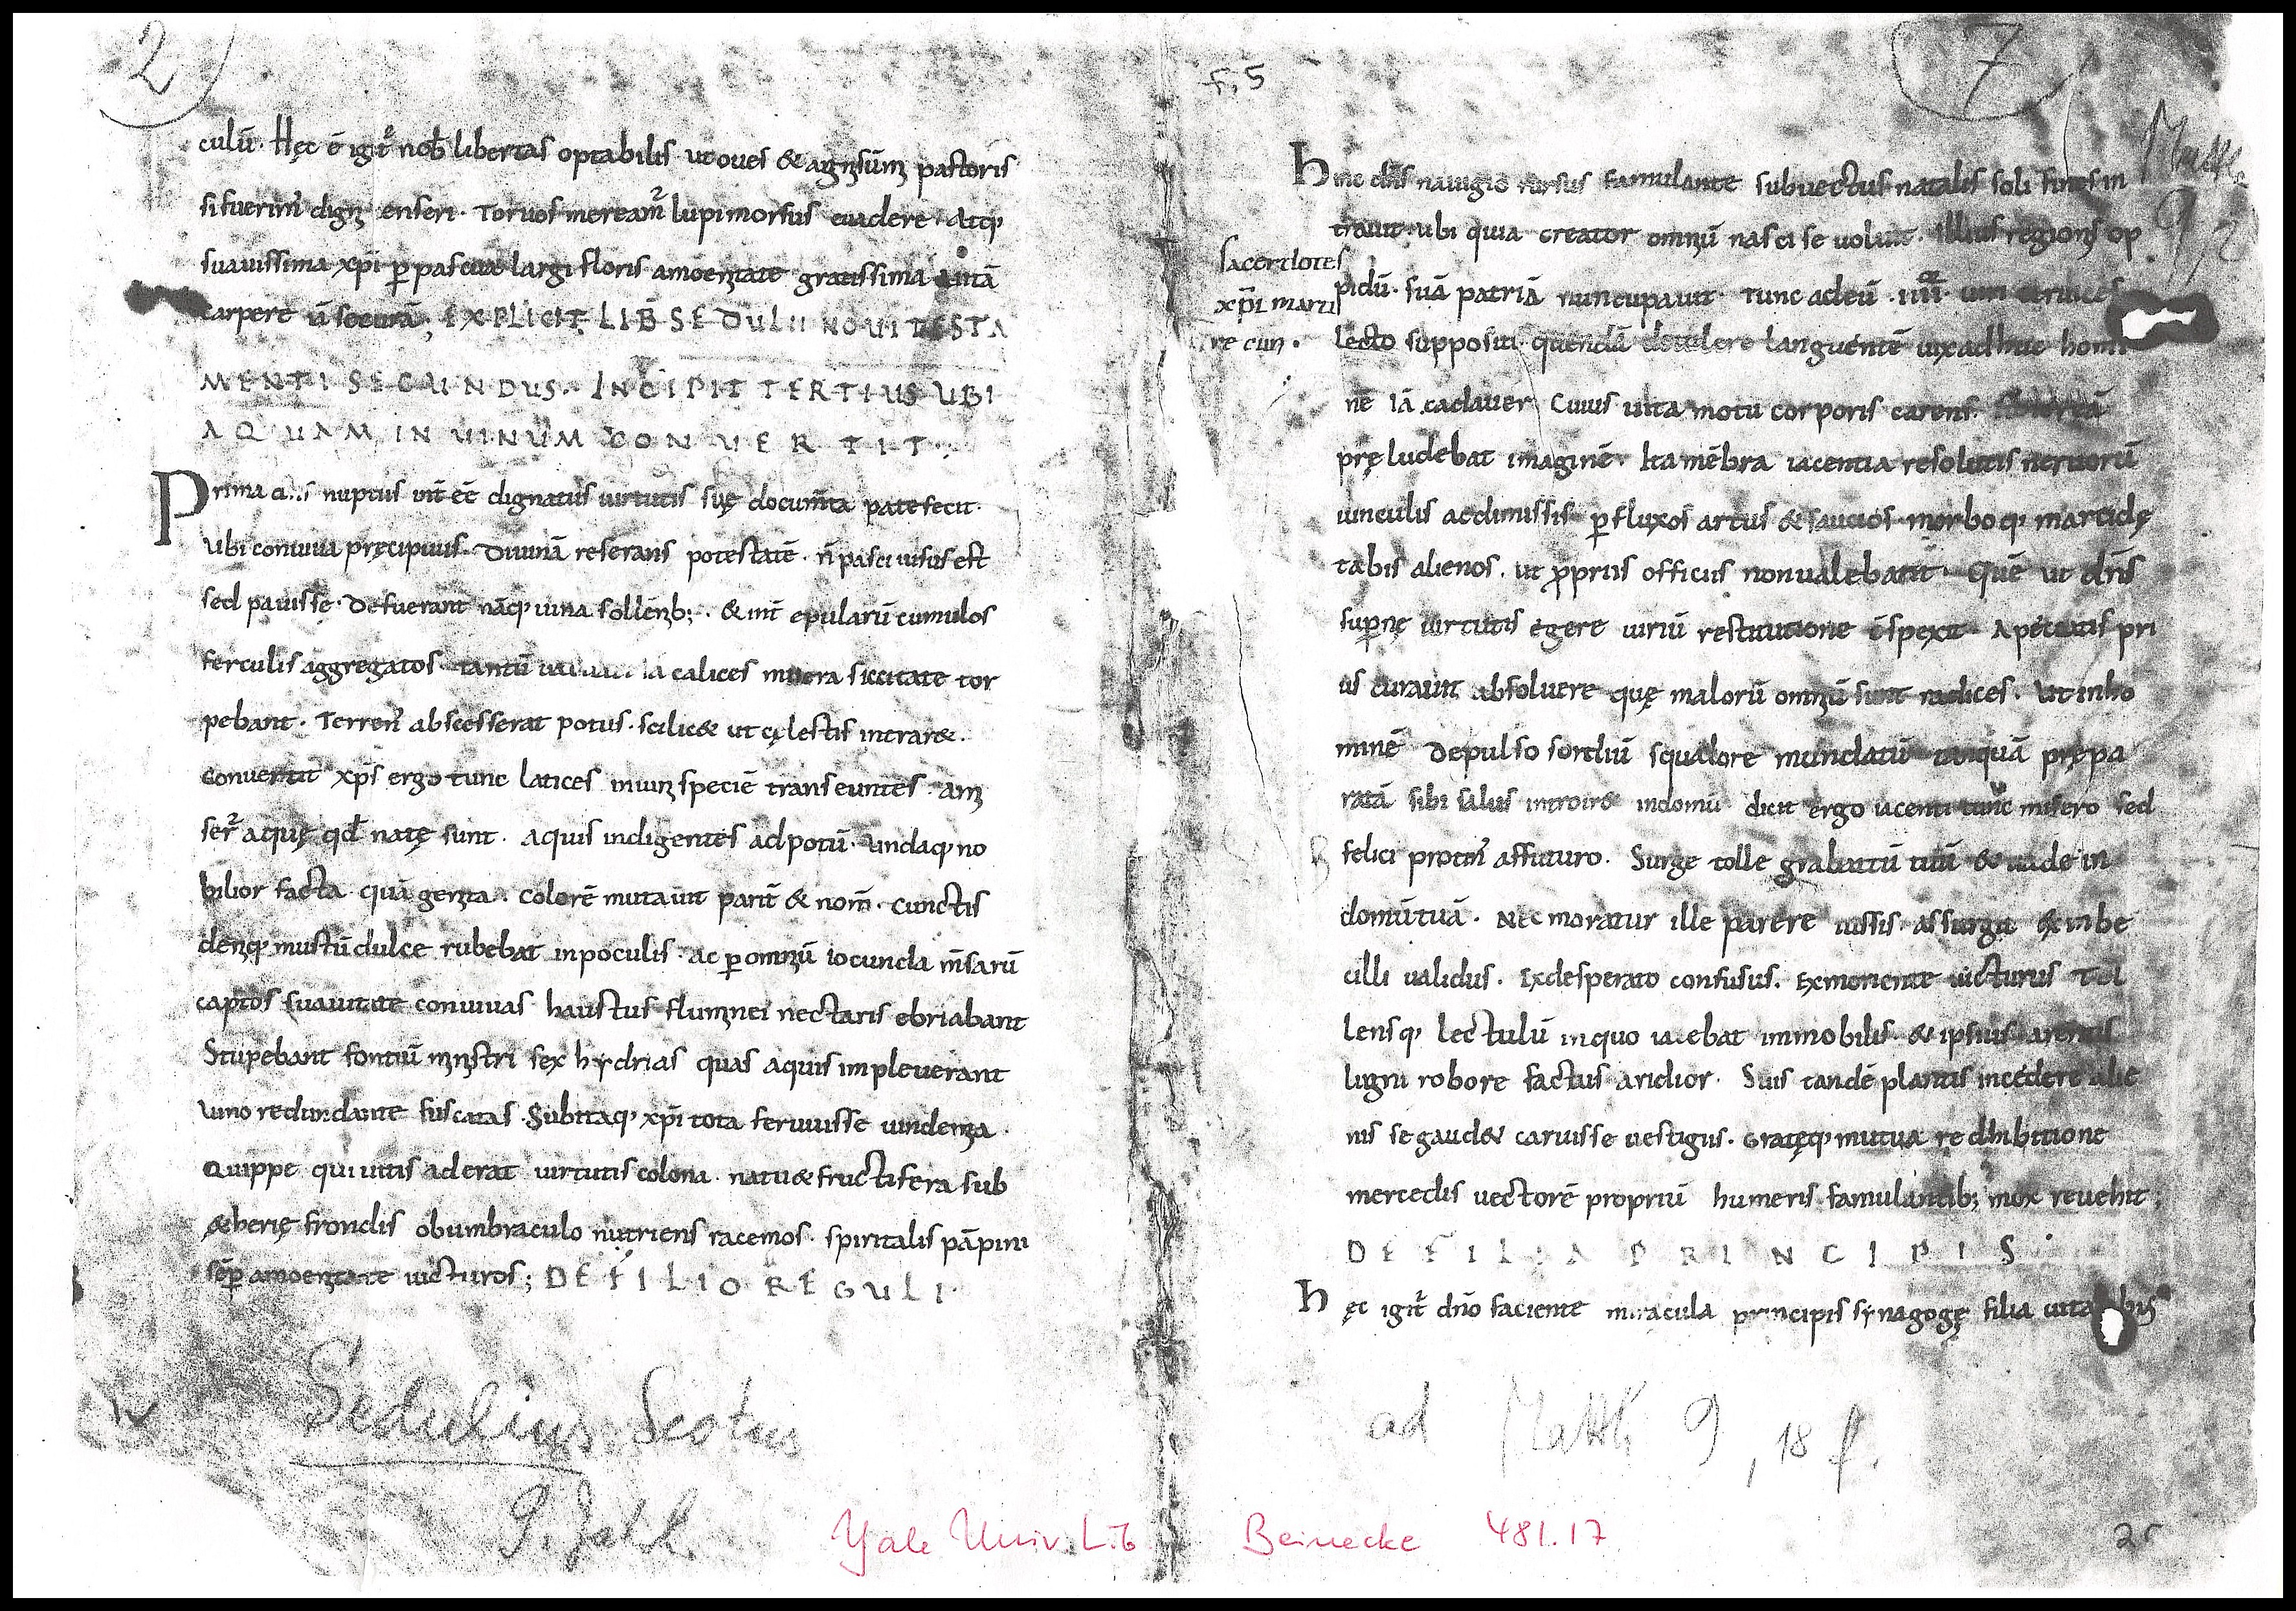 2
culū. Hęc ē igit᷑ nob̄ libertas optabilis ut oues & agni sum᷒ pastoris
si fuerim᷒ digni enseri. Toruos meream᷒ lupi morsus euadere. Atq;
suauissima xp̄i ꝑ pascua largi floris amoenitate gratissima uitā
carpere iā securā; EXPLICIT LIB̄ SEDULII NOUI TESTA
MENTI SECUNDUS. INCIPIT TERTIUS UBI
AQUAM IN UINUM CONUERTIT.
Prima nuptiis int̄ ēē dignatus uirtutis suę docum̄ta patefecit.
Ubi conuiua pręcipuus. Diuinā reserans potestatē. n̄ pasci uisus est
sed pauisse. Defuerant nāq; uina sollēnib;. & int̄ epularū cumulos
ferculis aggregatos. tantū calices misera siccitate tor
pebant. Terren᷒ abscesserat potus. scilic& ut cęlestis intrar&.
Conuertit xp̄s ergo tunc latices in uini speciē transeuntes. am
ser᷑ aquę qd̄ natę sunt. Aquis indigentes ad potū. undaq; no
bilior facta quā genita. Colorē mutauit parit̄ & nom̄. Cunctis
deniq; mustū dulce rubebat in poculis. ac ꝑ omniū iocunda m̄sarū
captos suauitate conuiuas haustus fluminei nectaris ebriabant
Stupebant fontiū ministri sex hydrias quas aquis impleuerant
Uino redundante fuscatas. Subitaq; xp̄i tota feruuisse uindemia.
Quippe qui uitis aderat uirtutis colona. natu& fructifera sub
&herię frondis obumbraculo nutriens racemos. spiritalis pāpini
sēꝑ amoenitate uicturos; DE FILIO REGULI.
Sedulius Scotus
9. Jahrh.
Yale Univ. Lib Beinecke 481.17
f. 5
7
Matth.
9, 2
sacerdotes
xp̄i marti
re cun.
Hinc dn̄s nauigio rursus famulante subuectus natalis soli fines in
trauit. ubi quia creator omniū nasci se uoluit. Illius regionis op
pidū. suā patriā nuncupauit. Tunc ad eū .iiii. uiri ceruices
lecto suppositi. quendā detulere languentē uix adhuc homi
nē iā cadauer. Cuius uita motu corporis carens.
pręludebat imaginē. Ita mēbra iacentia resolutis neruorū
uinculis ac dimissis ꝑ fluxos artus & saucios morboq; marcidę
tabis alienos. ut ꝓpriis officiis non ualebant. Quē ut dn̄s
suꝑnę uirtutis egere uiriū restitutione c̄spexit. A peccatis pri
us curauit absoluere quę malorū omniū sunt radices. Ut in ho
minē depulso sordiū squalore mundatū tāquā prępa
ratā sibi salus introir& in domū dicit ergo iacenti tunc misero sed
felici protin᷒ affuturo. Surge tolle grabattū tuū & uade in
domū tuā. Nec moratur ille parere iussis. assurgit ex inbe
cilli ualidus. Ex desperato confusus. Ex moriente uicturus Tol
lensq; lectulū in quo iacebat immobilis. & ipsius arentis
ligni robore factus aridior. Suis tandē plantis incedere alie
nis se gaud& caruisse uestigiis. Gratęq; mutua redhibitione
mercedis uectorē propriū humeris famulantib; mox reuehit;
DE FILIA PRINCIPIS.
Hęc igit̄ dn̄o faciente miracula principis synagogę filia uitalibus
ad Matth 9, 18 f.